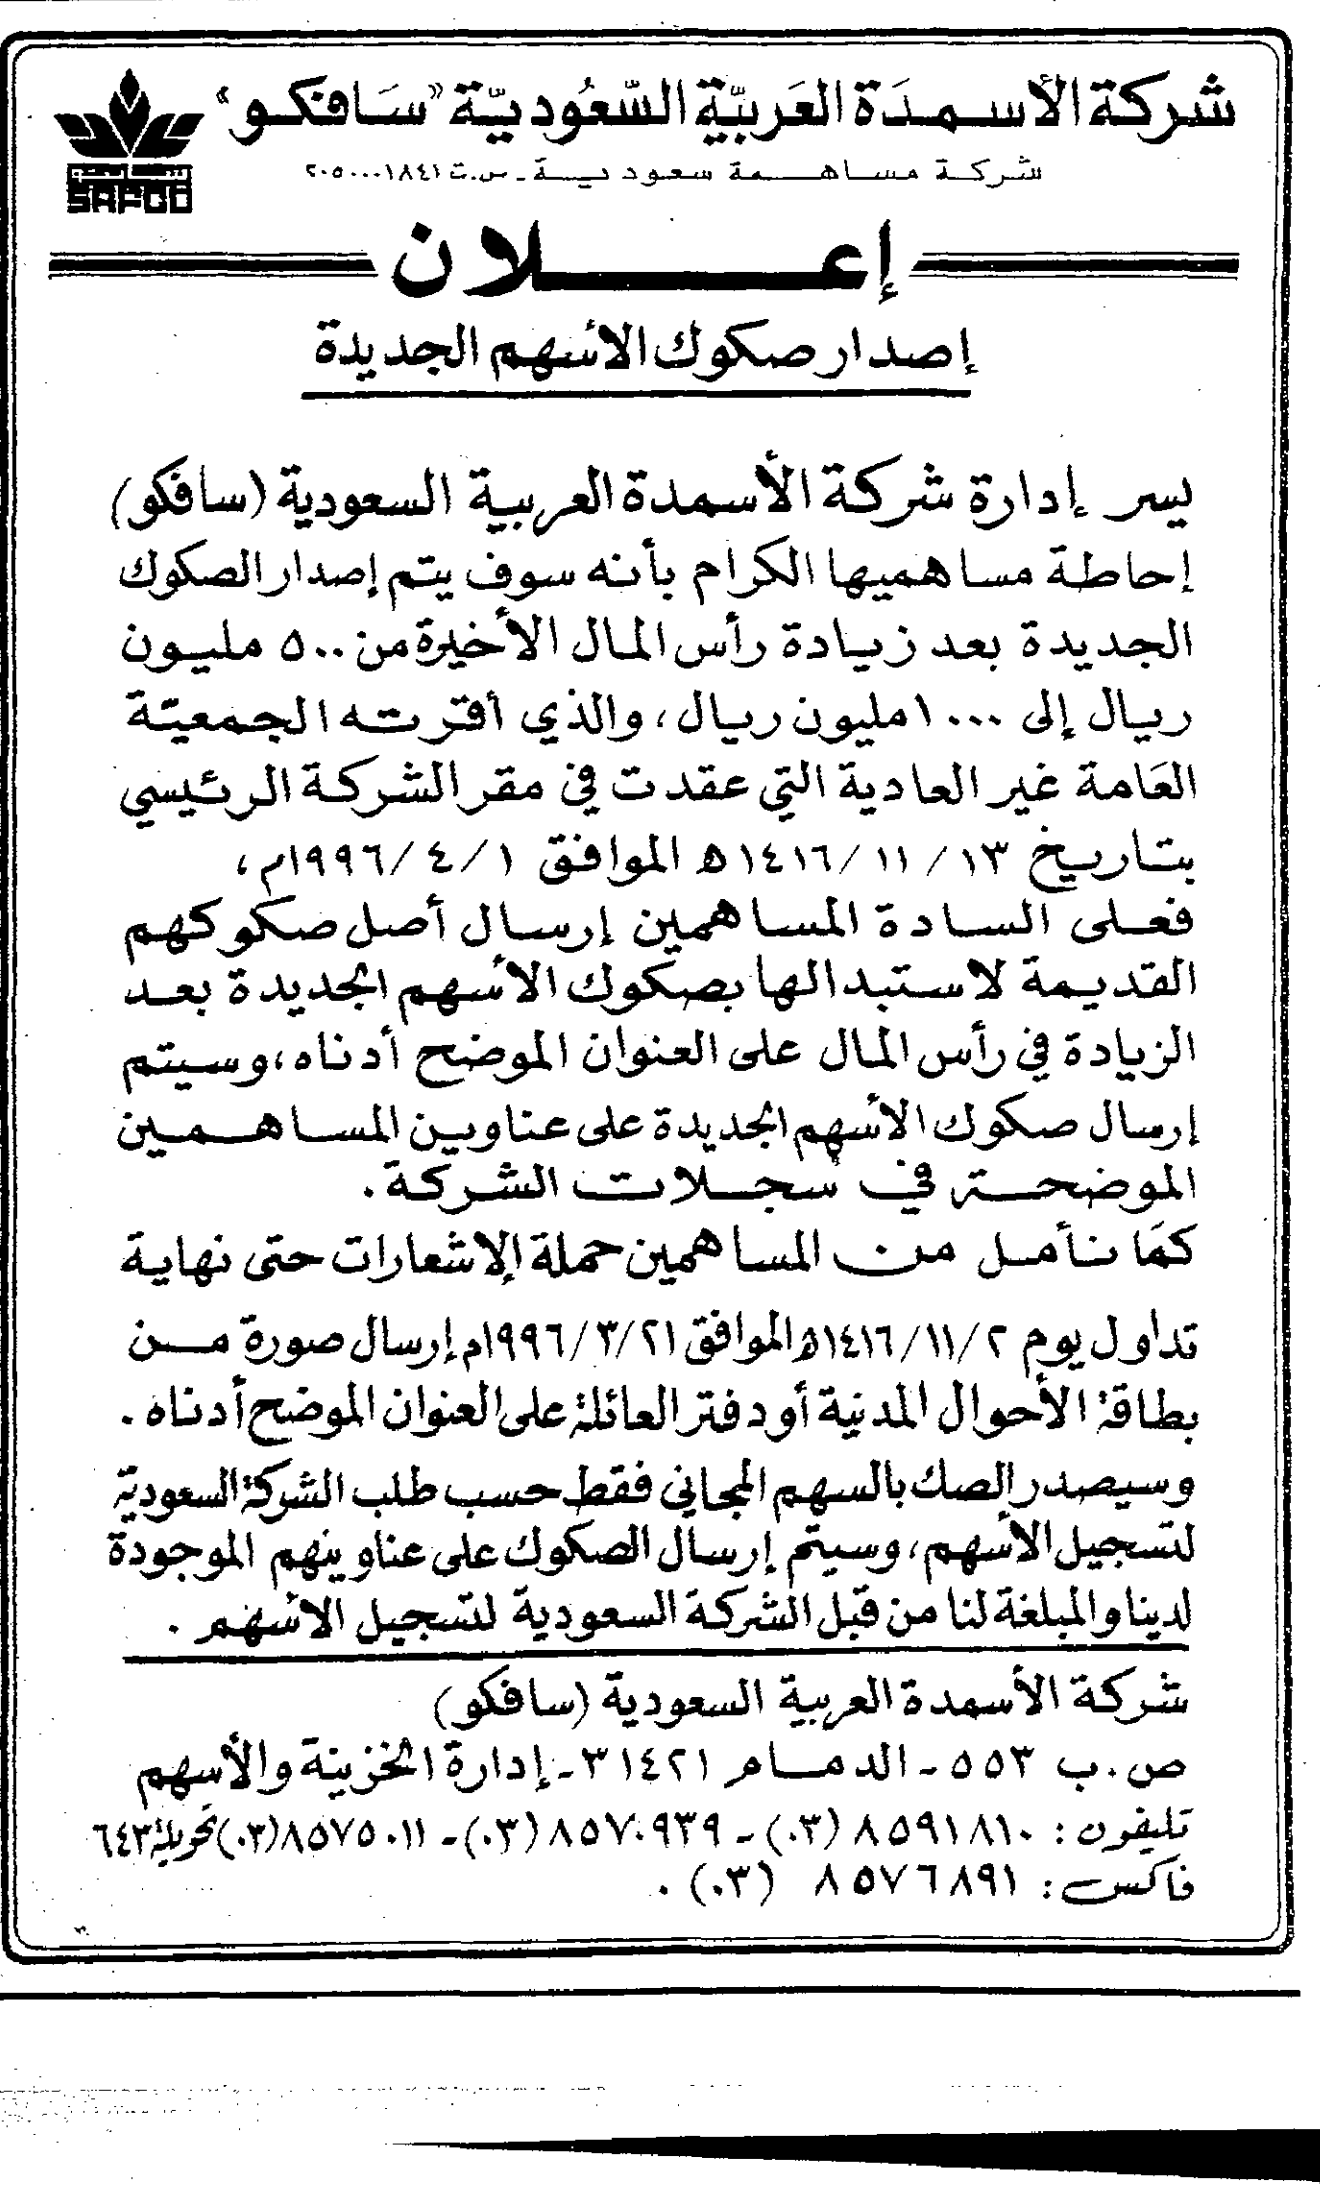 شركة الأسمدة العربية السعودية «سافكو»
شركة مساهمة سعودية - س.ت ٢٠٥٠٠٠١٨٤١
سافكو
SAFCO
إعلان
إصدار صكوك الأسهم الجديدة
يسر إدارة شركة الأسمدة العربية السعودية (سافكو)
إحاطة مساهميها الكرام بأنه سوف يتم إصدار الصكوك
الجديدة بعد زيادة رأس المال الأخيرة من ٥٠٠ مليون
ريال إلى ١٠٠٠ مليون ريال، والذي أقرته الجمعية
العامة غير العادية التي عقدت في مقر الشركة الرئيسي
بتاريخ ١٣/ ١١/ ١٤١٦ه الموافق ١/ ٤/ ١٩٩٦م،
فعلى السادة المساهمين إرسال أصل صكوكهم
القديمة لاستبدالها بصكوك الأسهم الجديدة بعد
الزيادة في رأس المال على العنوان الموضح أدناه، وسيتم
إرسال صكوك الأسهم الجديدة على عناوين المساهمين
الموضحة في سجلات الشركة.
كما نأمل من المساهمين حملة الإشعارات حتى نهاية
تداول يوم ٢/ ١١/ ١٤١٦ه الموافق ٢١/ ٣/ ١٩٩٦م إرسال صورة من
بطاقة الأحوال المدنية أو دفتر العائلة على العنوان الموضح أدناه.
وسيصدر الصك بالسهم المجاني فقط حسب طلب الشركة السعودية
لتسجيل الأسهم، وسيتم إرسال الصكوك على عناوينهم الموجودة
لدينا والمبلغة لنا من قبل الشركة السعودية لتسجيل الأسهم.
شركة الأسمدة العربية السعودية (سافكو)
ص.ب ٥٥٣ - الدمام ٣١٤٢١ - إدارة الخزينة والأسهم
تليفون: ٨٥٩١٨١٠ (٠٣) - ٨٥٧٠٩٣٩ (٠٣) - ٨٥٧٥٠١١ (٠٣) تحويلة ٦٤٣
فاكس: ٨٥٧٦٨٩١ (٠٣).